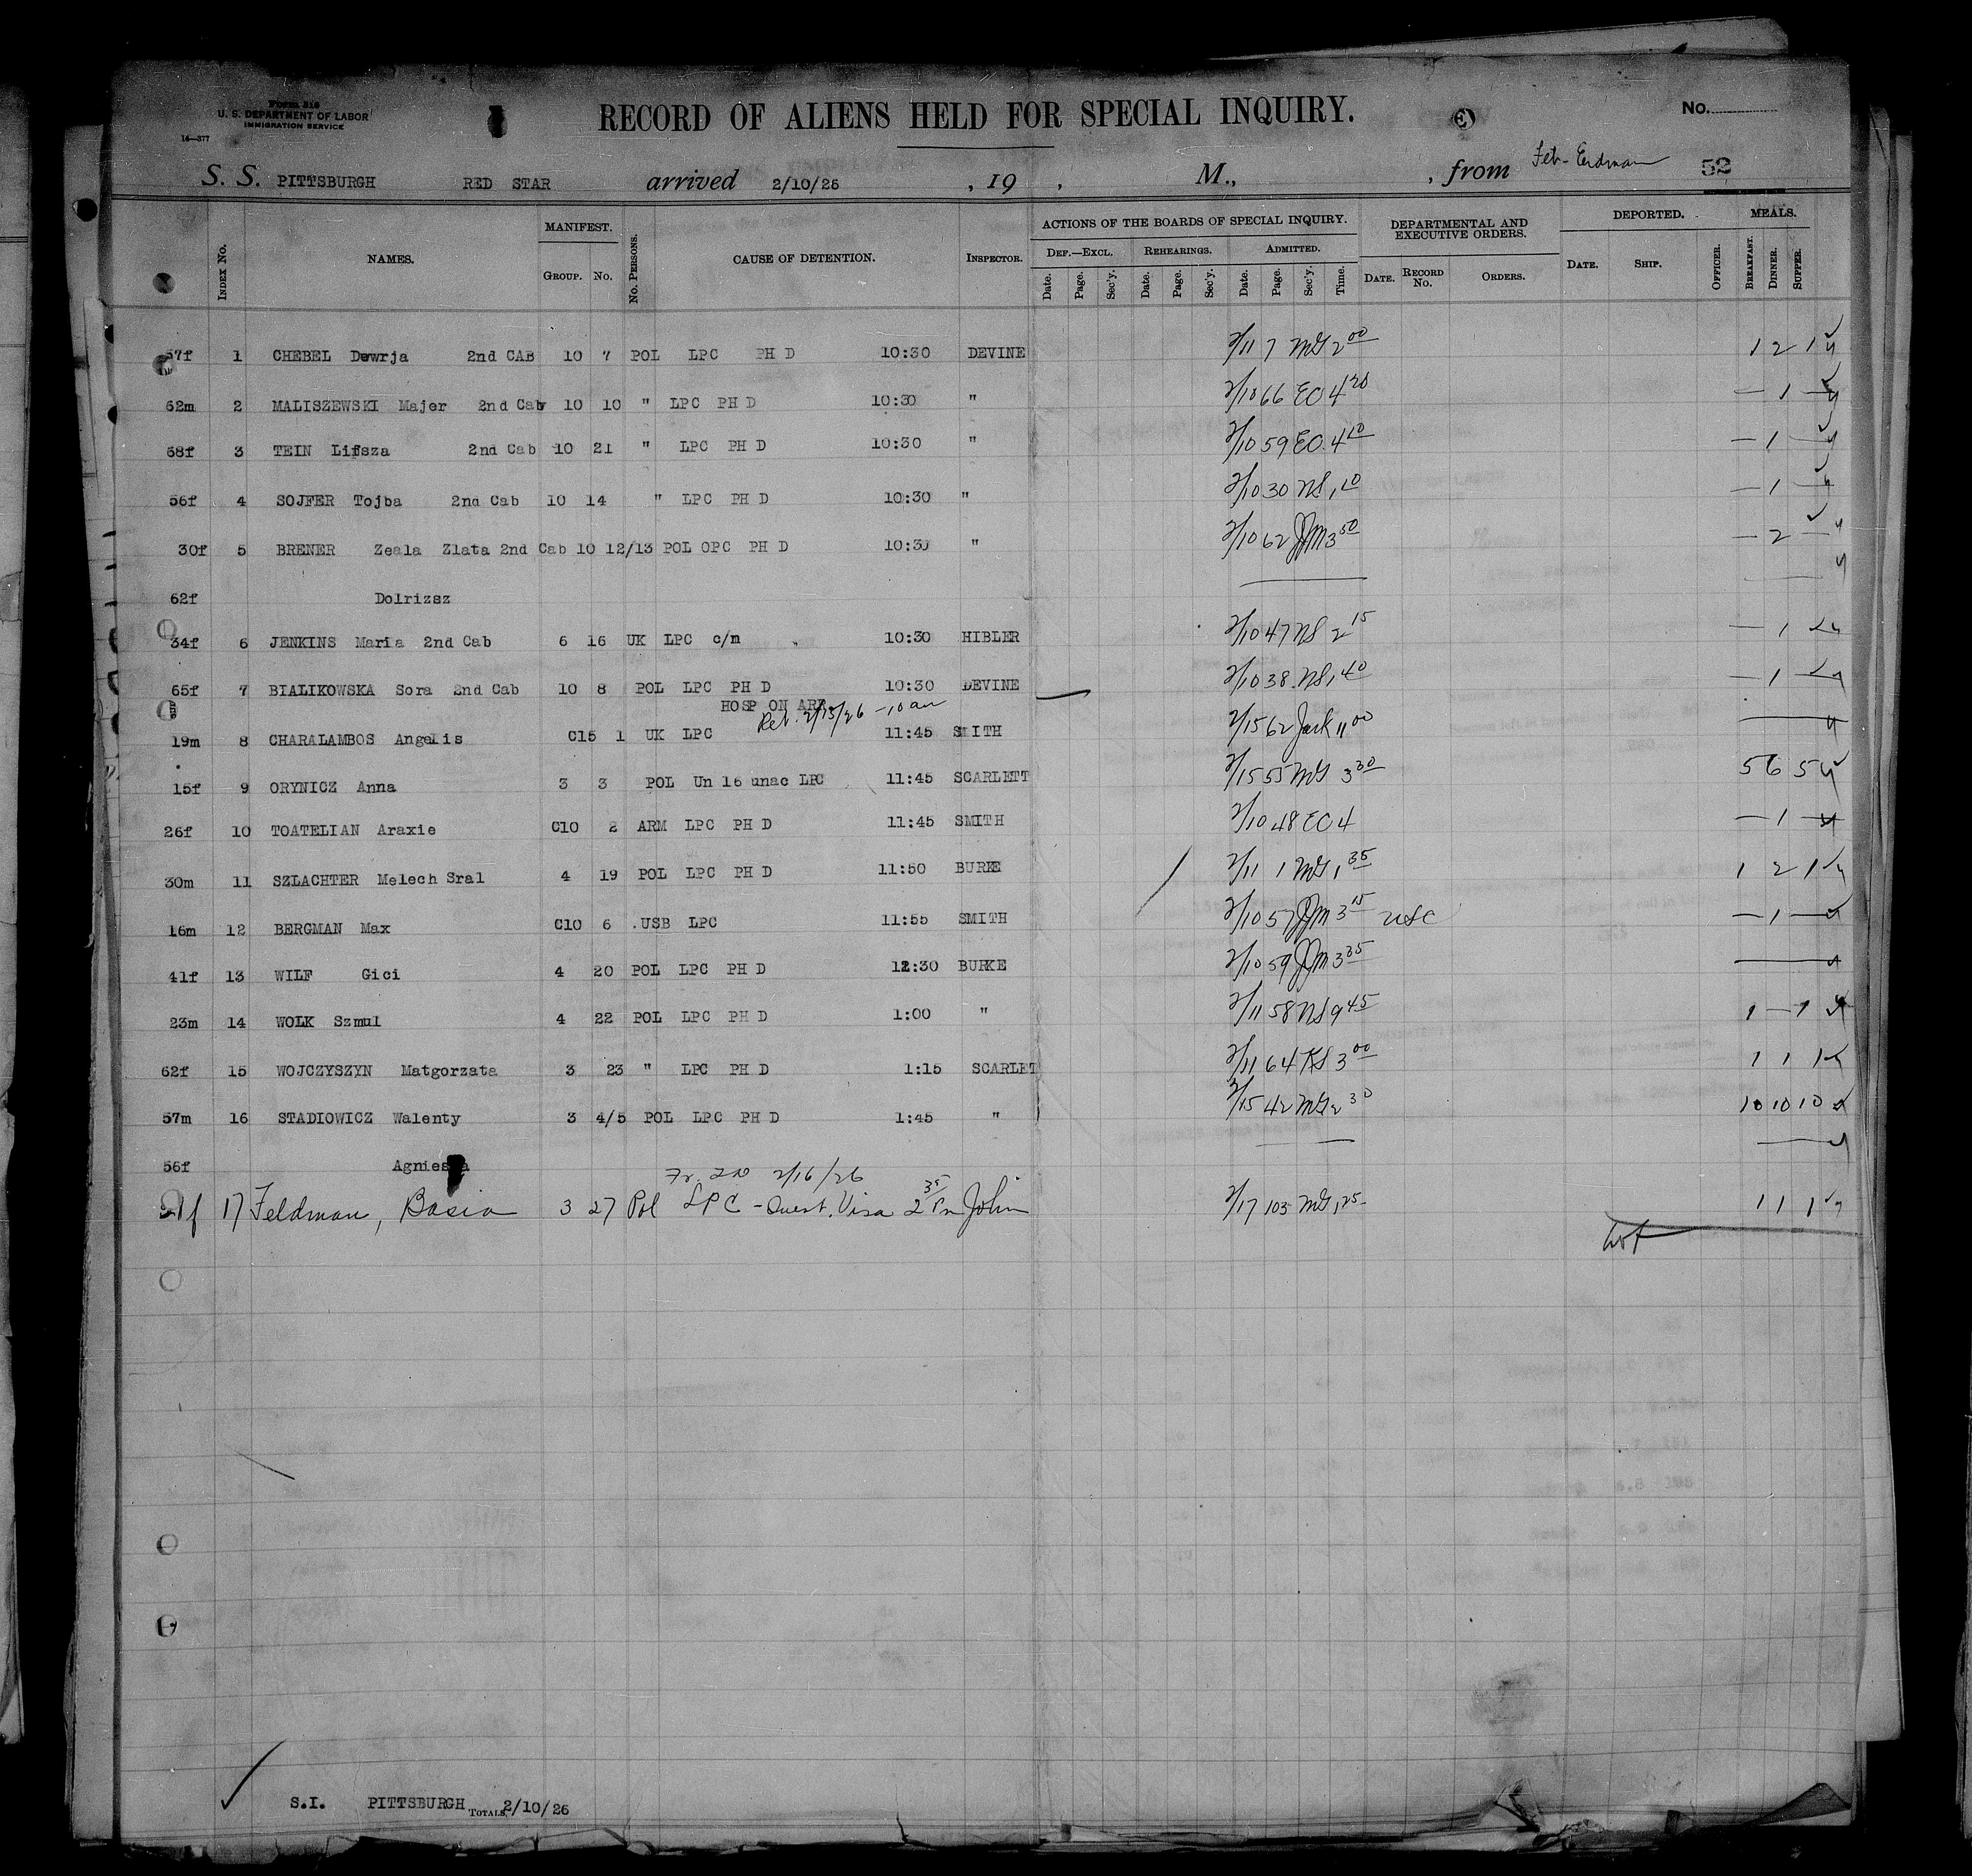 Form 316
U. S. DEPARTMENT OF LABOR
IMMIGRATION SERVICE
16—377
RECORD OF ALIENS HELD FOR SPECIAL INQUIRY.
No.
S. S. PITTSBURGH RED STAR arrived 2/10/26 , 19 , M., , from Feb-Erdman 52
INDEX NO. NAMES. MANIFEST. GROUP. NO. NO. PERSONS. CAUSE OF DETENTION. INSPECTOR. ACTIONS OF THE BOARDS OF SPECIAL INQUIRY. DEF.—EXCL. Date. Page. Sec'y. REHEARINGS. Date. Page. Sec'y. ADMITTED. Date. Page. Sec'y. Time. DEPARTMENTAL AND EXECUTIVE ORDERS. DATE. RECORD NO. ORDERS. DEPORTED. DATE. SHIP. OFFICER. MEALS. BREAKFAST. DINNER. SUPPER.
57f 1 CHEBEL Dewrja 2nd CAB 10 7 POL LPC PH D 10:30 DEVINE 2/11 7 MG 2 00 1 2 1
62m 2 MALISZEWSKI Majer 2nd Cab 10 10 " LPC PH D 10:30 " 2/10 66 EC 4 20 — 1 —
58f 3 TEIN Lifsza 2nd Cab 10 21 " LPC PH D 10:30 " 2/10 59 EC 4 10 — 1 —
56f 4 SOJFER Tojba 2nd Cab 10 14 " LPC PH D 10:30 " 2/10 30 NS 1 10 — 1 —
30f 5 BRENER Zeala Zlata 2nd Cab 10 12/13 POL OPC PH D 10:30 " 2/10 62 JJM 3 50 — 2 —
62f Dolrizsz
34f 6 JENKINS Maria 2nd Cab 6 16 UK LPC c/n 10:30 HIBLER 2/10 47 NS 2 15 — 1
65f 7 BIALIKOWSKA Sora 2nd Cab 10 8 POL LPC PH D 10:30 DEVINE 2/10 38 NS 1 40 — 1 —
HOSP ON ARR Rel. 2/15/26 - 10 am
19m 8 CHARALAMBOS Angelis C15 1 UK LPC 11:45 SMITH 2/15 62 Jack 11 00
15f 9 ORYNICZ Anna 3 3 POL Un 16 unac LPC 11:45 SCARLETT 2/15 55 MG 3 30 5 6 5
26f 10 TOATELIAN Araxie C10 2 ARM LPC PH D 11:45 SMITH 2/10 48 EC 4 — 1 —
30m 11 SZLACHTER Melech Sral 4 19 POL LPC PH D 11:50 BURKE 2/11 1 MG 1 35 1 2 1
16m 12 BERGMAN Max C10 6 .USB LPC 11:55 SMITH 2/10 57 JJM 3 15 USC — 1 —
41f 13 WILF Gici 4 20 POL LPC PH D 12:30 BURKE 2/10 59 JJM 3 35
23m 14 WOLK Szmul 4 22 POL LPC PH D 1:00 " 2/11 58 NS 9 45 1 — 1
62f 15 WOJCZYSZYN Matgorzata 3 23 " LPC PH D 1:15 SCARLET 2/11 64 KS 3 00 1 1 1
57m 16 STADIOWICZ Walenty 3 4/5 POL LPC PH D 1:45 " 2/15 42 MG 2 30 10 10 10
56f Agniesza
Fr. 2/16/26
17 Feldman, Basia 3 27 Pol LPC - Quest. Visa 2 35 Pm John 2/17 103 MG 1 25 1 1 1
S.I. PITTSBURGH TOTALS, 2/10/26